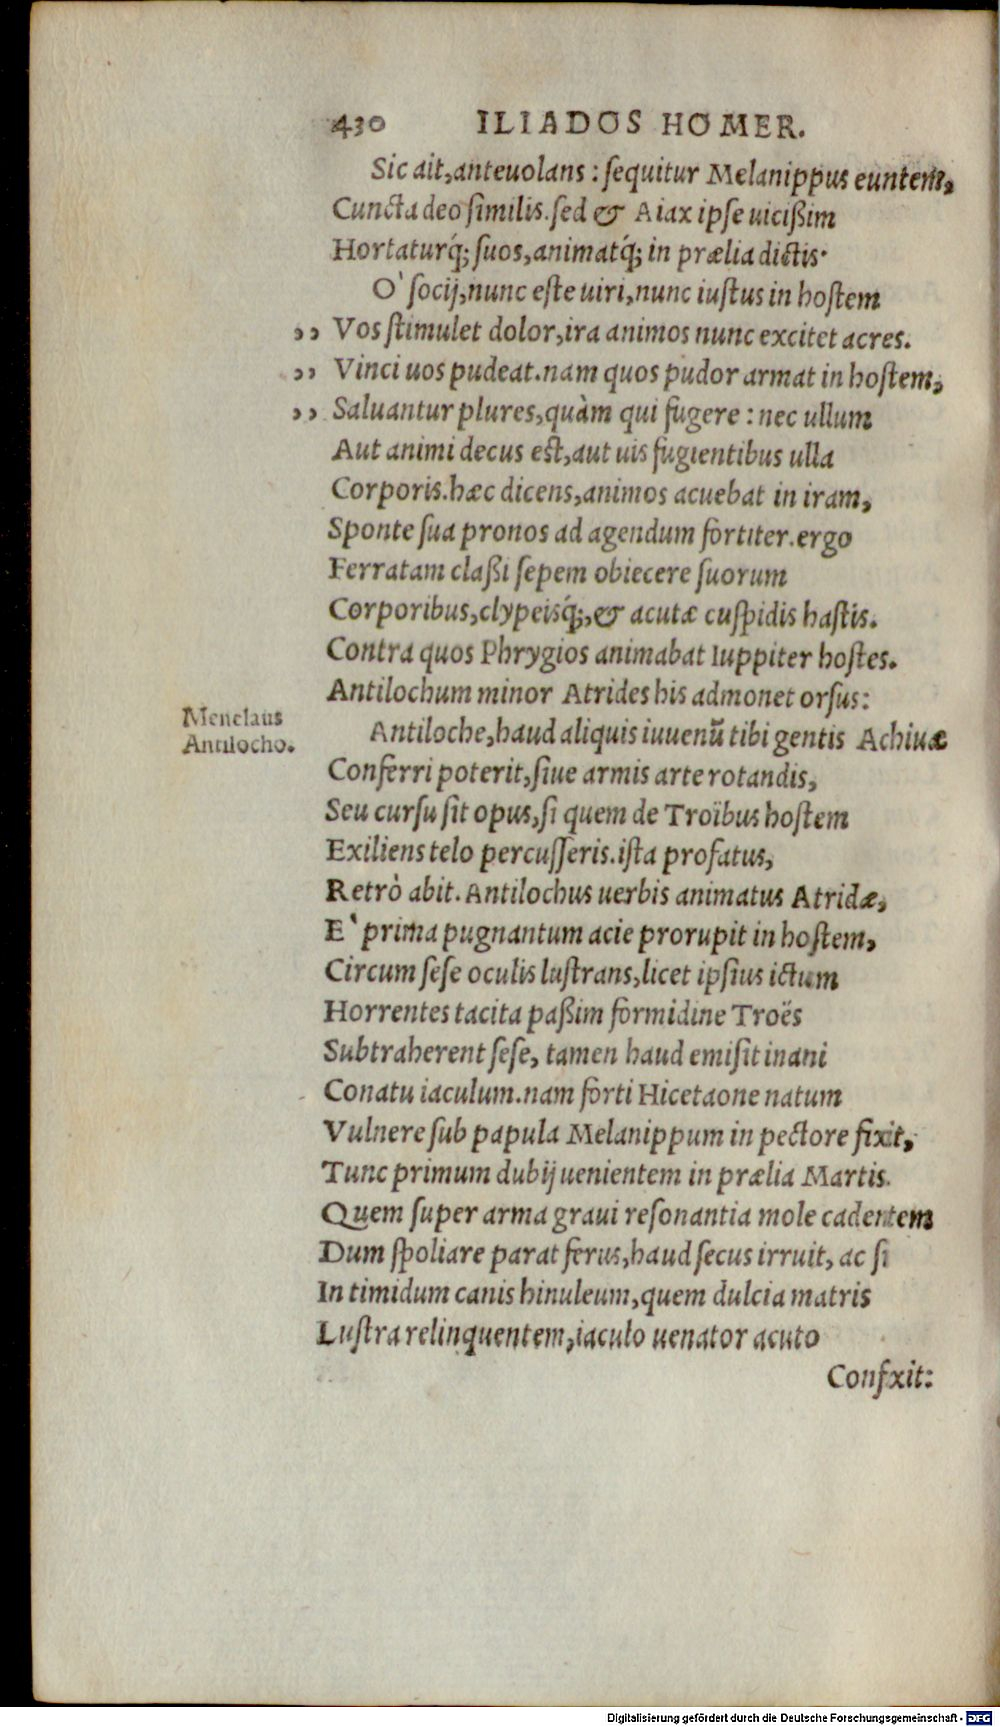 430 ILIADOS HOMER.
Sic ait, anteuolans : ſequitur Melanippus euntem,
Cuncta deo ſimilis. ſed & Aiax ipſe uicißim
Hortaturq́; ſuos, animatq́; in prælia dictis.
O` ſocij, nunc eſte uiri, nunc iuſtus in hoſtem
,, Vos ſtimulet dolor, ira animos nunc excitet acres.
,, Vinci uos pudeat. nam quos pudor armat in hoſtem,
,, Saluantur plures, quàm qui fugere : nec ullum
Aut animi decus eſt, aut uis fugientibus ulla
Corporis. hæc dicens, animos acuebat in iram,
Sponte ſua pronos ad agendum fortiter. ergo
Ferratam claßi ſepem obiecere ſuorum
Corporibus, clypeisq́;, & acutæ cuſpidis haſtis.
Contra quos Phrygios animabat Iuppiter hoſtes.
Antilochum minor Atrides his admonet orſus:
Menelaus
Antilocho.
Antiloche, haud aliquis iuuenũ tibi gentis Achiuæ
Conferri poterit, ſiue armis arte rotandis,
Seu curſu ſit opus, ſi quem de Troïbus hoſtem
Exiliens telo percuſſeris. iſta profatus,
Retrò abit. Antilochus uerbis animatus Atridæ,
E` prima pugnantum acie prorupit in hoſtem,
Circum ſeſe oculis luſtrans, licet ipſius ictum
Horrentes tacita paßim formidine Troës
Subtraherent ſeſe, tamen haud emiſit inani
Conatu iaculum. nam forti Hicetaone natum
Vulnere ſub papula Melanippum in pectore fixit,
Tunc primum dubij uenientem in prælia Martis.
Quem ſuper arma graui reſonantia mole cadentem
Dum ſpoliare parat ferus, haud ſecus irruit, ac ſi
In timidum canis hinuleum, quem dulcia matris
Luſtra relinquentem, iaculo uenator acuto
Confixit:
Digitalisierung gefördert durch die Deutsche Forschungsgemeinschaft - DFG